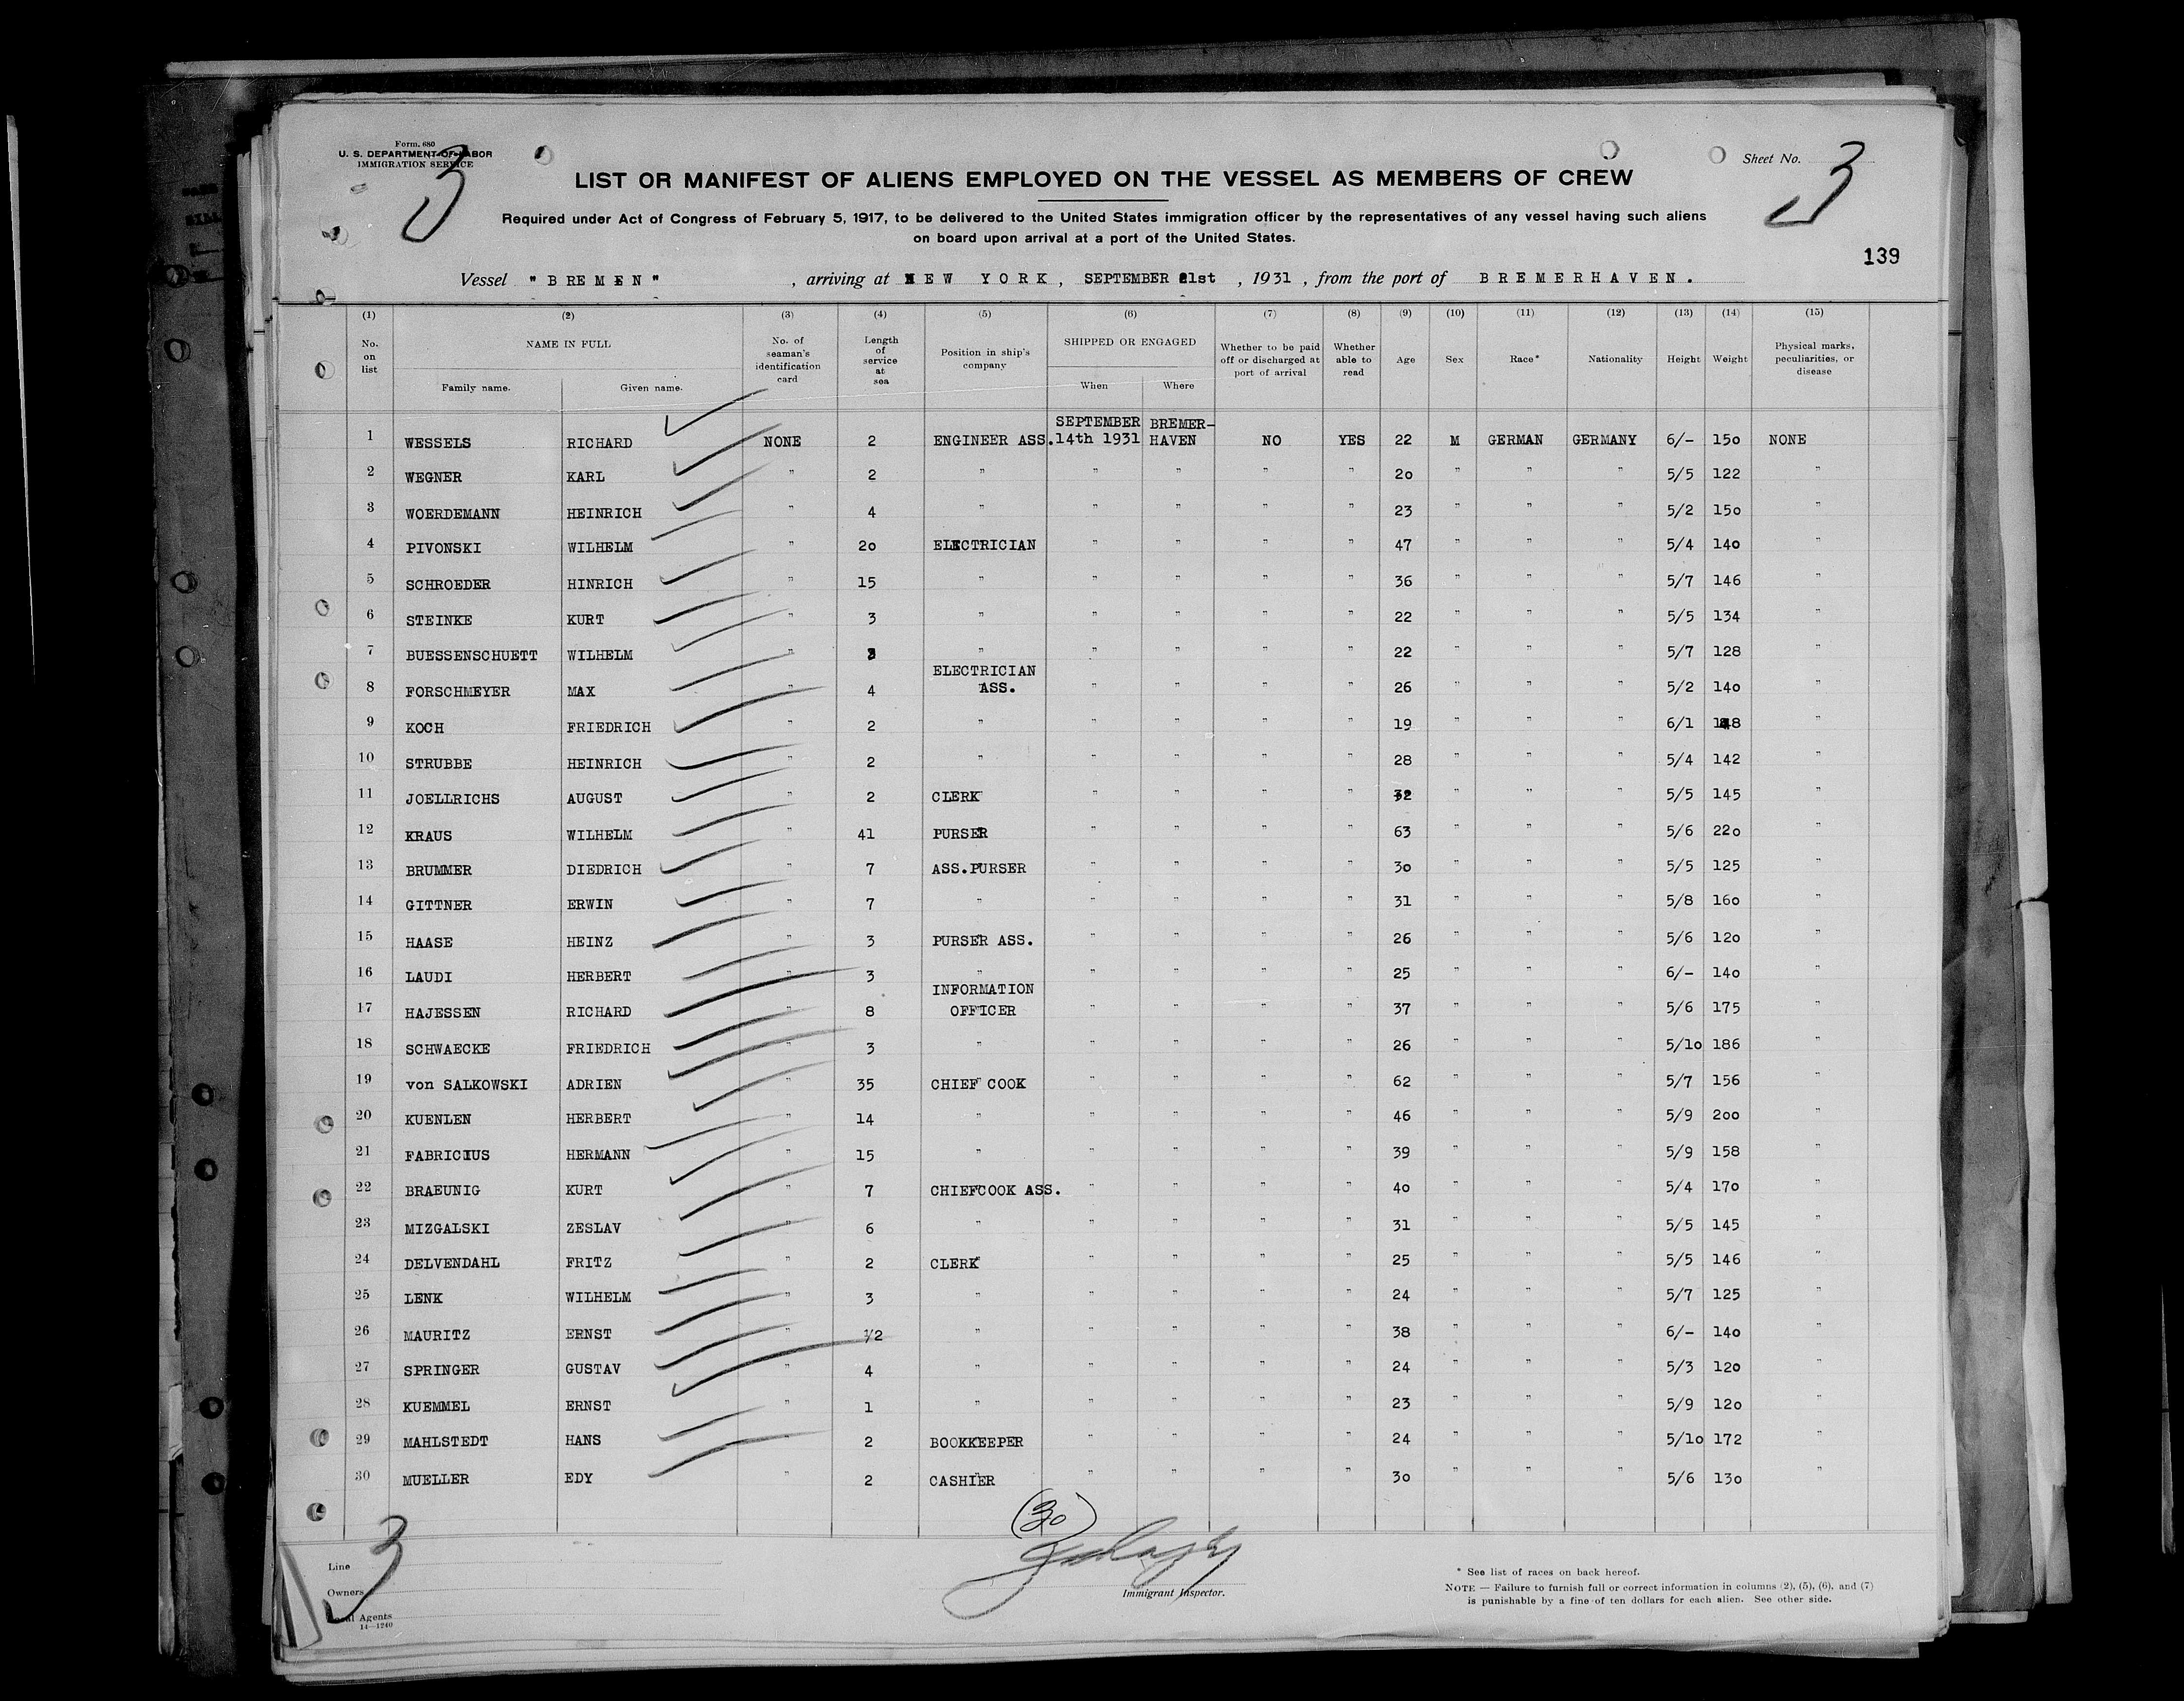 Form. 680
U. S. DEPARTMENT OF LABOR
IMMIGRATION SERVICE
3
Sheet No. 3
LIST OR MANIFEST OF ALIENS EMPLOYED ON THE VESSEL AS MEMBERS OF CREW
Required under Act of Congress of February 5, 1917, to be delivered to the United States immigration officer by the representatives of any vessel having such aliens
on board upon arrival at a port of the United States.
139
Vessel "BREMEN", arriving at NEW YORK, SEPTEMBER 21st, 1931, from the port of BREMERHAVEN.
(1) (2) (3) (4) (5) (6) (7) (8) (9) (10) (11) (12) (13) (14) (15)
No. on list NAME IN FULL Family name. Given name. No. of seaman's identification card Length of service at sea Position in ship's company SHIPPED OR ENGAGED When Where Whether to be paid off or discharged at port of arrival Whether able to read Age Sex Race* Nationality Height Weight Physical marks, peculiarities, or disease
1 WESSELS RICHARD NONE 2 ENGINEER ASS. SEPTEMBER 14th 1931 BREMER-HAVEN NO YES 22 M GERMAN GERMANY 6/- 150 NONE
2 WEGNER KARL " 2 " " " " " 20 " " " 5/5 122 "
3 WOERDEMANN HEINRICH " 4 " " " " " 23 " " " 5/2 150 "
4 PIVONSKI WILHELM " 20 ELECTRICIAN " " " " 47 " " " 5/4 140 "
5 SCHROEDER HINRICH " 15 " " " " " 36 " " " 5/7 146 "
6 STEINKE KURT " 3 " " " " " 22 " " " 5/5 134 "
7 BUESSENSCHUETT WILHELM " " " " " " 22 " " " 5/7 128 "
8 FORSCHMEYER MAX " 4 ELECTRICIAN ASS. " " " " 26 " " " 5/2 140 "
9 KOCH FRIEDRICH " 2 " " " " " 19 " " " 6/1 "
10 STRUBBE HEINRICH " 2 " " " " " 28 " " " 5/4 142 "
11 JOELLRICHS AUGUST " 2 CLERK " " " " 32 " " " 5/5 145 "
12 KRAUS WILHELM " 41 PURSER " " " " 63 " " " 5/6 220 "
13 BRUMMER DIEDRICH " 7 ASS.PURSER " " " " 30 " " " 5/5 125 "
14 GITTNER ERWIN " 7 " " " " " 31 " " " 5/8 160 "
15 HAASE HEINZ " 3 PURSER ASS. " " " " 26 " " " 5/6 120 "
16 LAUDI HERBERT " 3 " " " " " 25 " " " 6/- 140 "
17 HAJESSEN RICHARD " 8 INFORMATION OFFICER " " " " 37 " " " 5/6 175 "
18 SCHWAECKE FRIEDRICH " 3 " " " " " 26 " " " 5/10 186 "
19 von SALKOWSKI ADRIEN " 35 CHIEF COOK " " " " 62 " " " 5/7 156 "
20 KUENLEN HERBERT " 14 " " " " " 46 " " " 5/9 200 "
21 FABRICIUS HERMANN " 15 " " " " " 39 " " " 5/9 158 "
22 BRAEUNIG KURT " 7 CHIEFCOOK ASS. " " " " 40 " " " 5/4 170 "
23 MIZGALSKI ZESLAV " 6 " " " " " 31 " " " 5/5 145 "
24 DELVENDAHL FRITZ " 2 CLERK " " " " 25 " " " 5/5 146 "
25 LENK WILHELM " 3 " " " " " 24 " " " 5/7 125 "
26 MAURITZ ERNST " 1/2 " " " " " 38 " " " 6/- 140 "
27 SPRINGER GUSTAV " 4 " " " " " 24 " " " 5/3 120 "
28 KUEMMEL ERNST " 1 " " " " " 23 " " " 5/9 120 "
29 MAHLSTEDT HANS " 2 BOOKKEEPER " " " " 24 " " " 5/10 172 "
30 MUELLER EDY " 2 CASHIER " " " " 30 " " " 5/6 130 "
(30)
3
Line
Owners
Local Agents
14—1240
Immigrant Inspector.
* See list of races on back hereof.
NOTE — Failure to furnish full or correct information in columns (2), (5), (6), and (7)
is punishable by a fine of ten dollars for each alien. See other side.